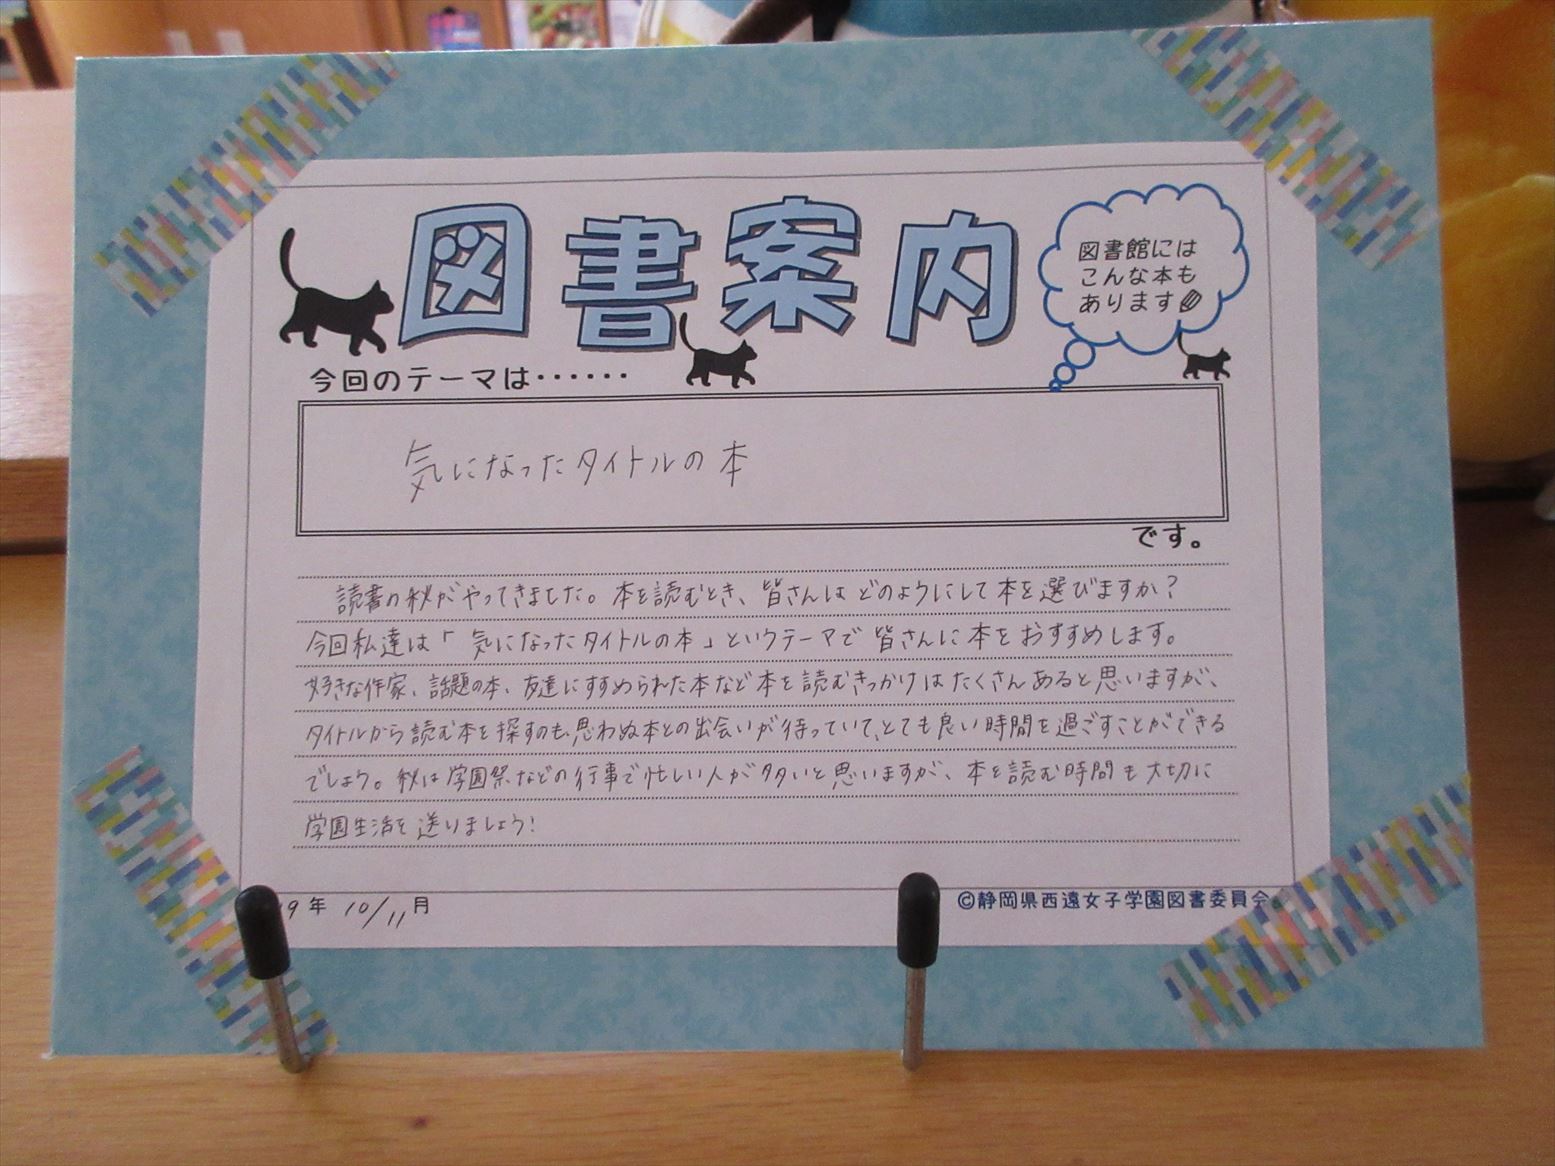 図書案内
図書館には
こんな本も
あります
今回のテーマは・・・・・・
気になったタイトルの本
です。
読書の秋がやってきました。本を読むとき、皆さんはどのようにして本を選びますか?
今回私達は「気になったタイトルの本」というテーマで皆さんに本をおすすめします。
好きな作家、話題の本、友達にすすめられた本など本を読むきっかけはたくさんあると思いますが、
タイトルから読む本を探すのも、思わぬ本との出会いが待っていて、とても良い時間を過ごすことができる
でしょう。秋は学園祭などの行事で忙しい人が多いと思いますが、本を読む時間も大切に
学園生活を送りましょう!
19年 10/11月
©静岡県西遠女子学園図書委員会